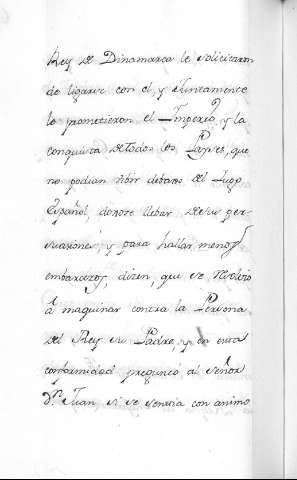 Rey de Dinamarca le solicitaron
de ligarse con el, y Juntamente
le prometieron el Imperio, y la
conquista de todos los Payses, que
no podian vibir debaxo del Jugo
Español, donose llebar de sus per-
suasiones, y para hallar menos
embarazos, dizen, que se resolvio
â maquinar contra la Persona
del Rey su Padre, y en esta
conformidad preguntó al señor
Dn. Juan si se sentia con animo